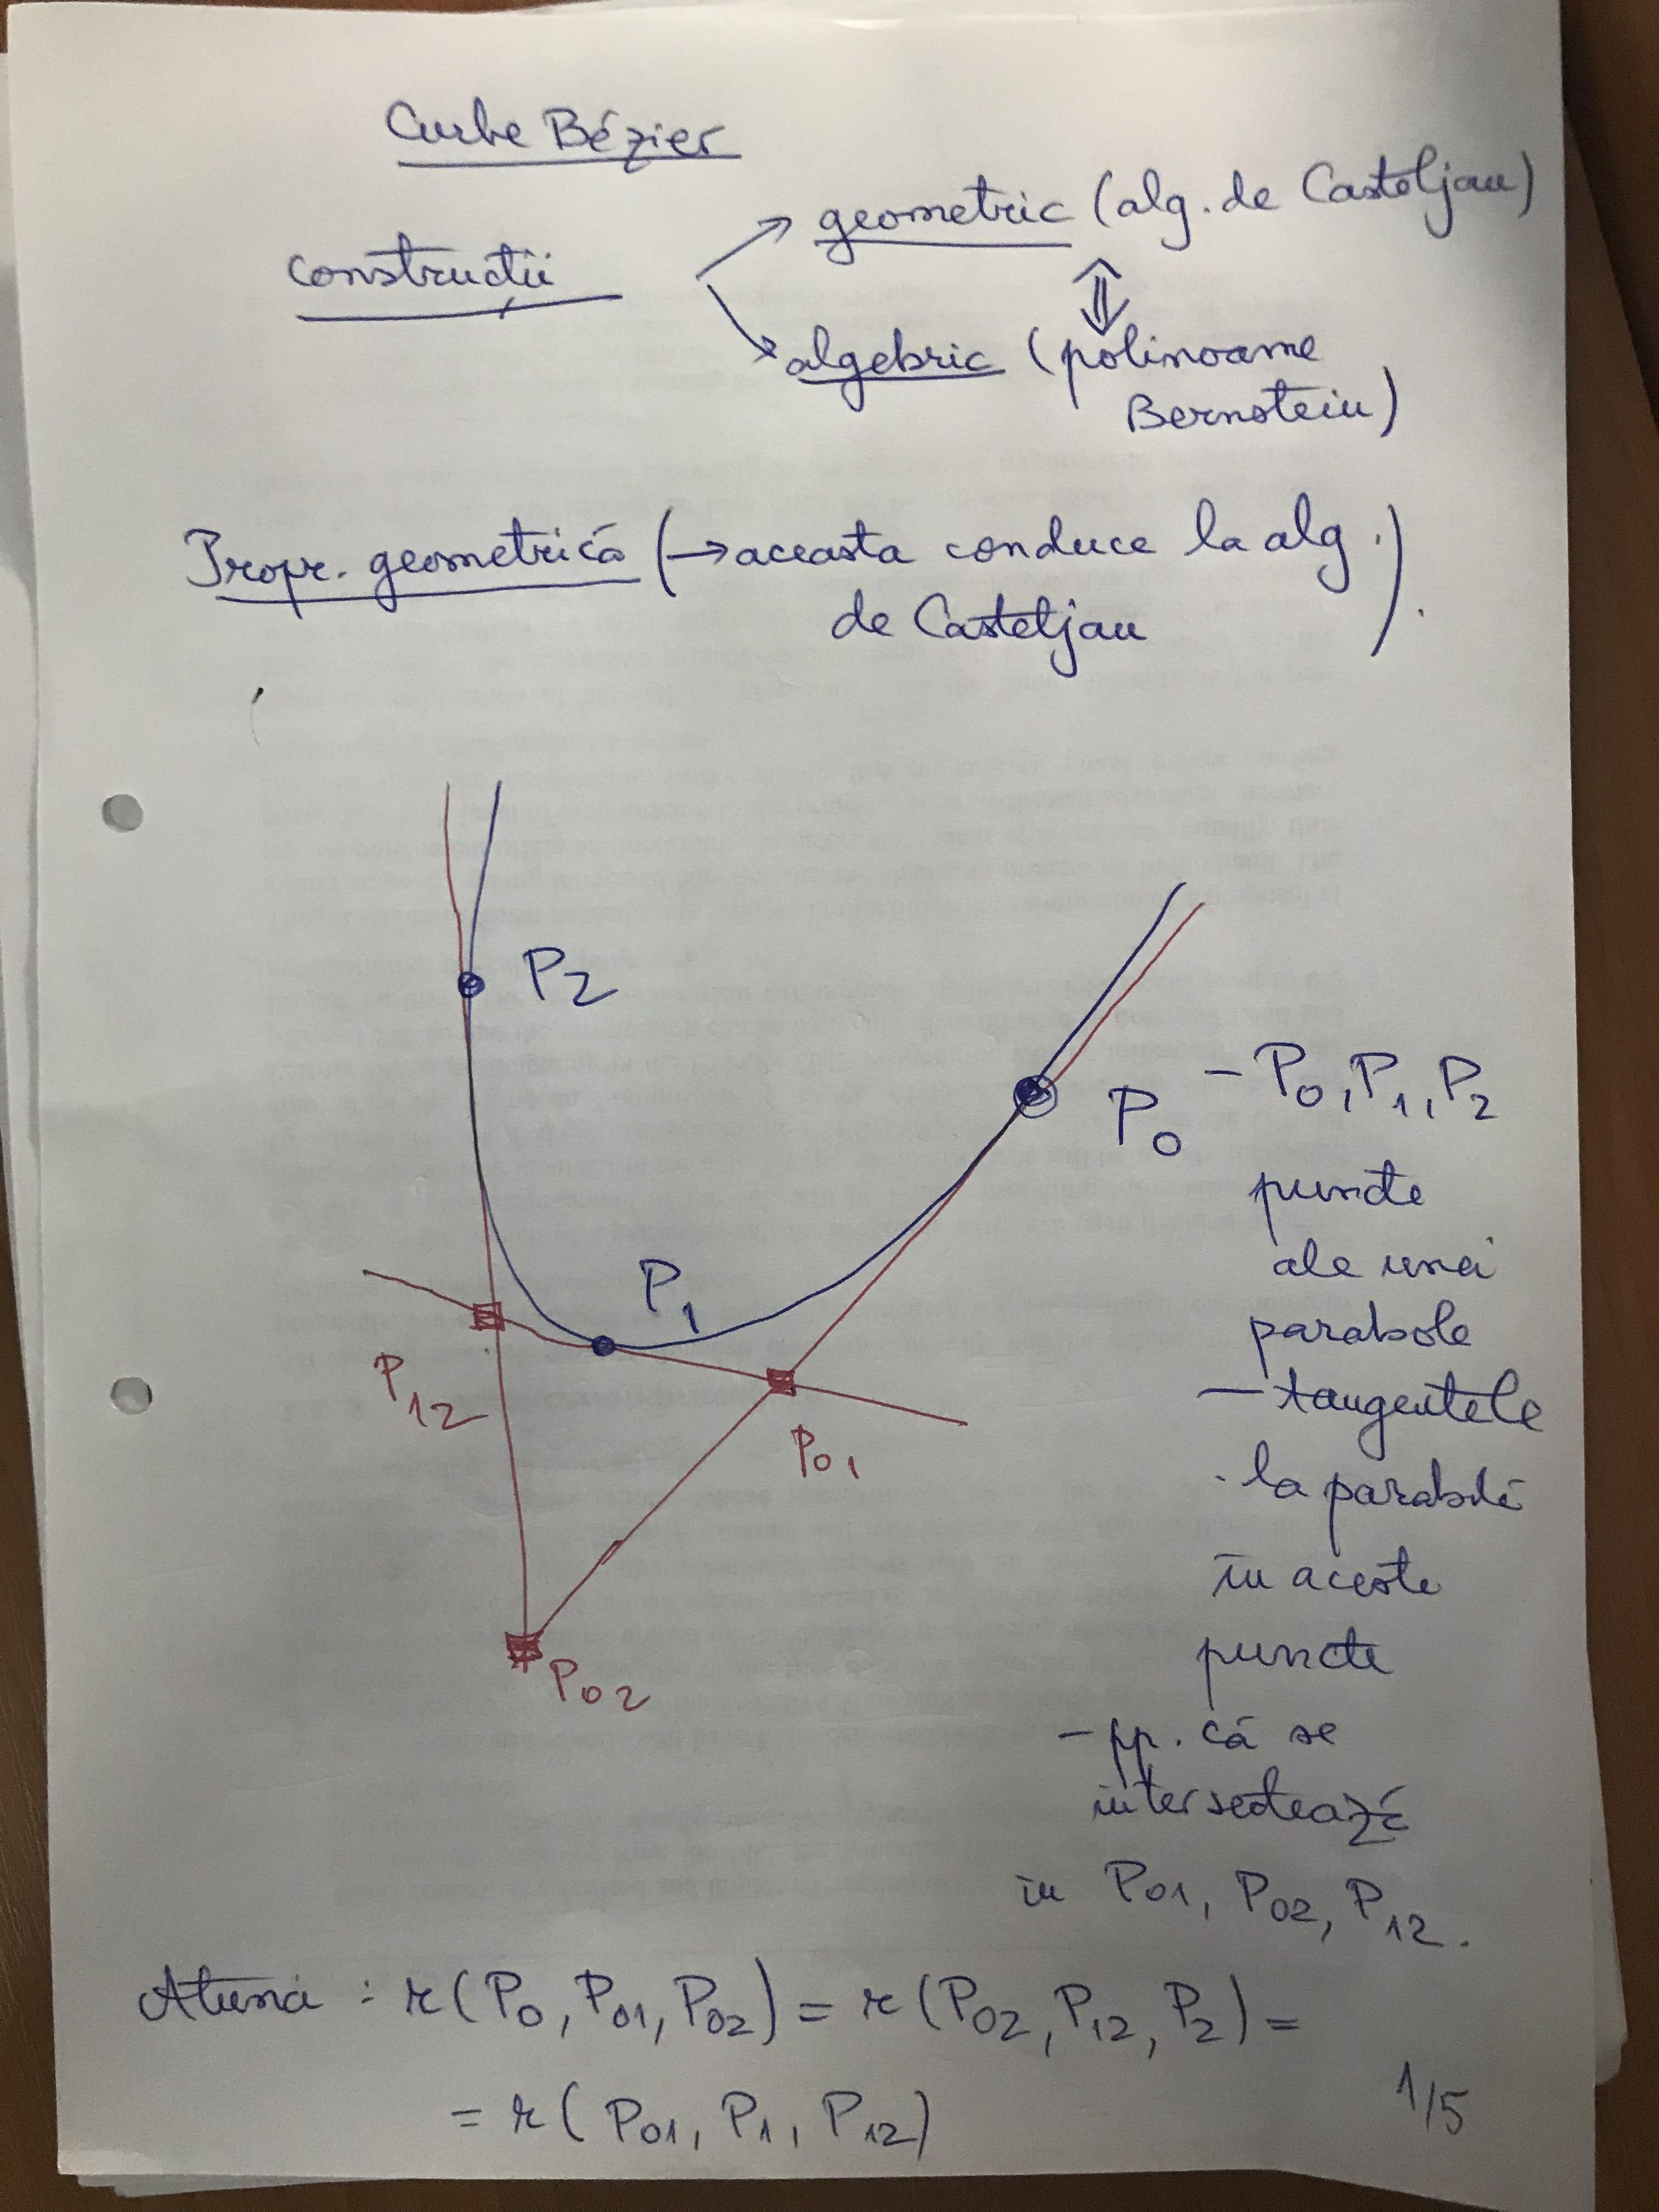 Curbe Bézier
construcții
geometric (alg. de Casteljau)
⇕
algebric (polinoame
Bernstein)
Propr. geometrică (→ aceasta conduce la alg.
de Casteljau).
P2
P0
P1
P12
P01
P02
- P0, P1, P2
puncte
ale unei
parabole
- tangentele
la parabolă
în aceste
puncte
- pp. că se
intersectează
în P01, P02, P12.
Atunci : r(P0, P01, P02) = r(P02, P12, P2) =
= r(P01, P1, P12)
1/5